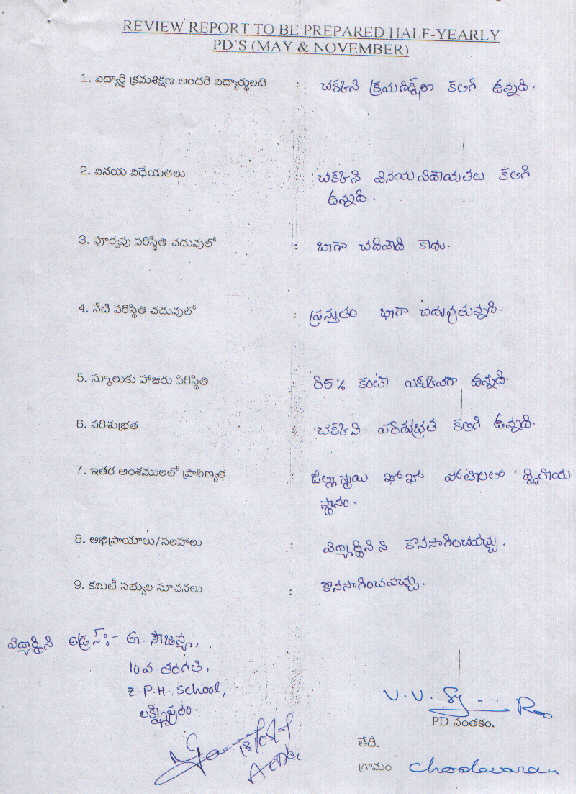 REVIEW REPORT TO BE PREPARED HALF-YEARLY
PD'S (MAY & NOVEMBER)
1. విద్యార్థి క్రమశిక్షణ అందరి విద్యార్థులతో : చక్కని క్రమశిక్షణ కలిగి ఉన్నది.
2. వినయ విధేయతలు : చక్కని వినయ విధేయతలు కలిగి
ఉన్నది.
3. పూర్వపు పరిస్థితి చదువులో : బాగా చదివేది కాదు.
4. నేటి పరిస్థితి చదువులో : ప్రస్తుతం బాగా చదువుతున్నది.
5. స్కూలుకు హాజరు పరిస్థితి : 85% కంటే ఎక్కువగా ఉన్నది.
6. పరిశుభ్రత : చక్కని పరిశుభ్రత కలిగి ఉన్నది.
7. ఇతర అంశములలో ప్రావీణ్యత : జిల్లా స్థాయి ఖో ఖో పోటీలలో ద్వితీయ
స్థానం.
8. అభిప్రాయాలు/సలహాలు : విద్యార్థినిని కొనసాగించవచ్చు.
9. కమిటీ సభ్యుల సూచనలు : కొనసాగించవచ్చు.
విద్యార్థిని అడ్రస్:-
10వ తరగతి,
Z.P.H. School,
లక్ష్మీపురం.
PD సంతకం.
తేది.
గ్రామం Choodavaram